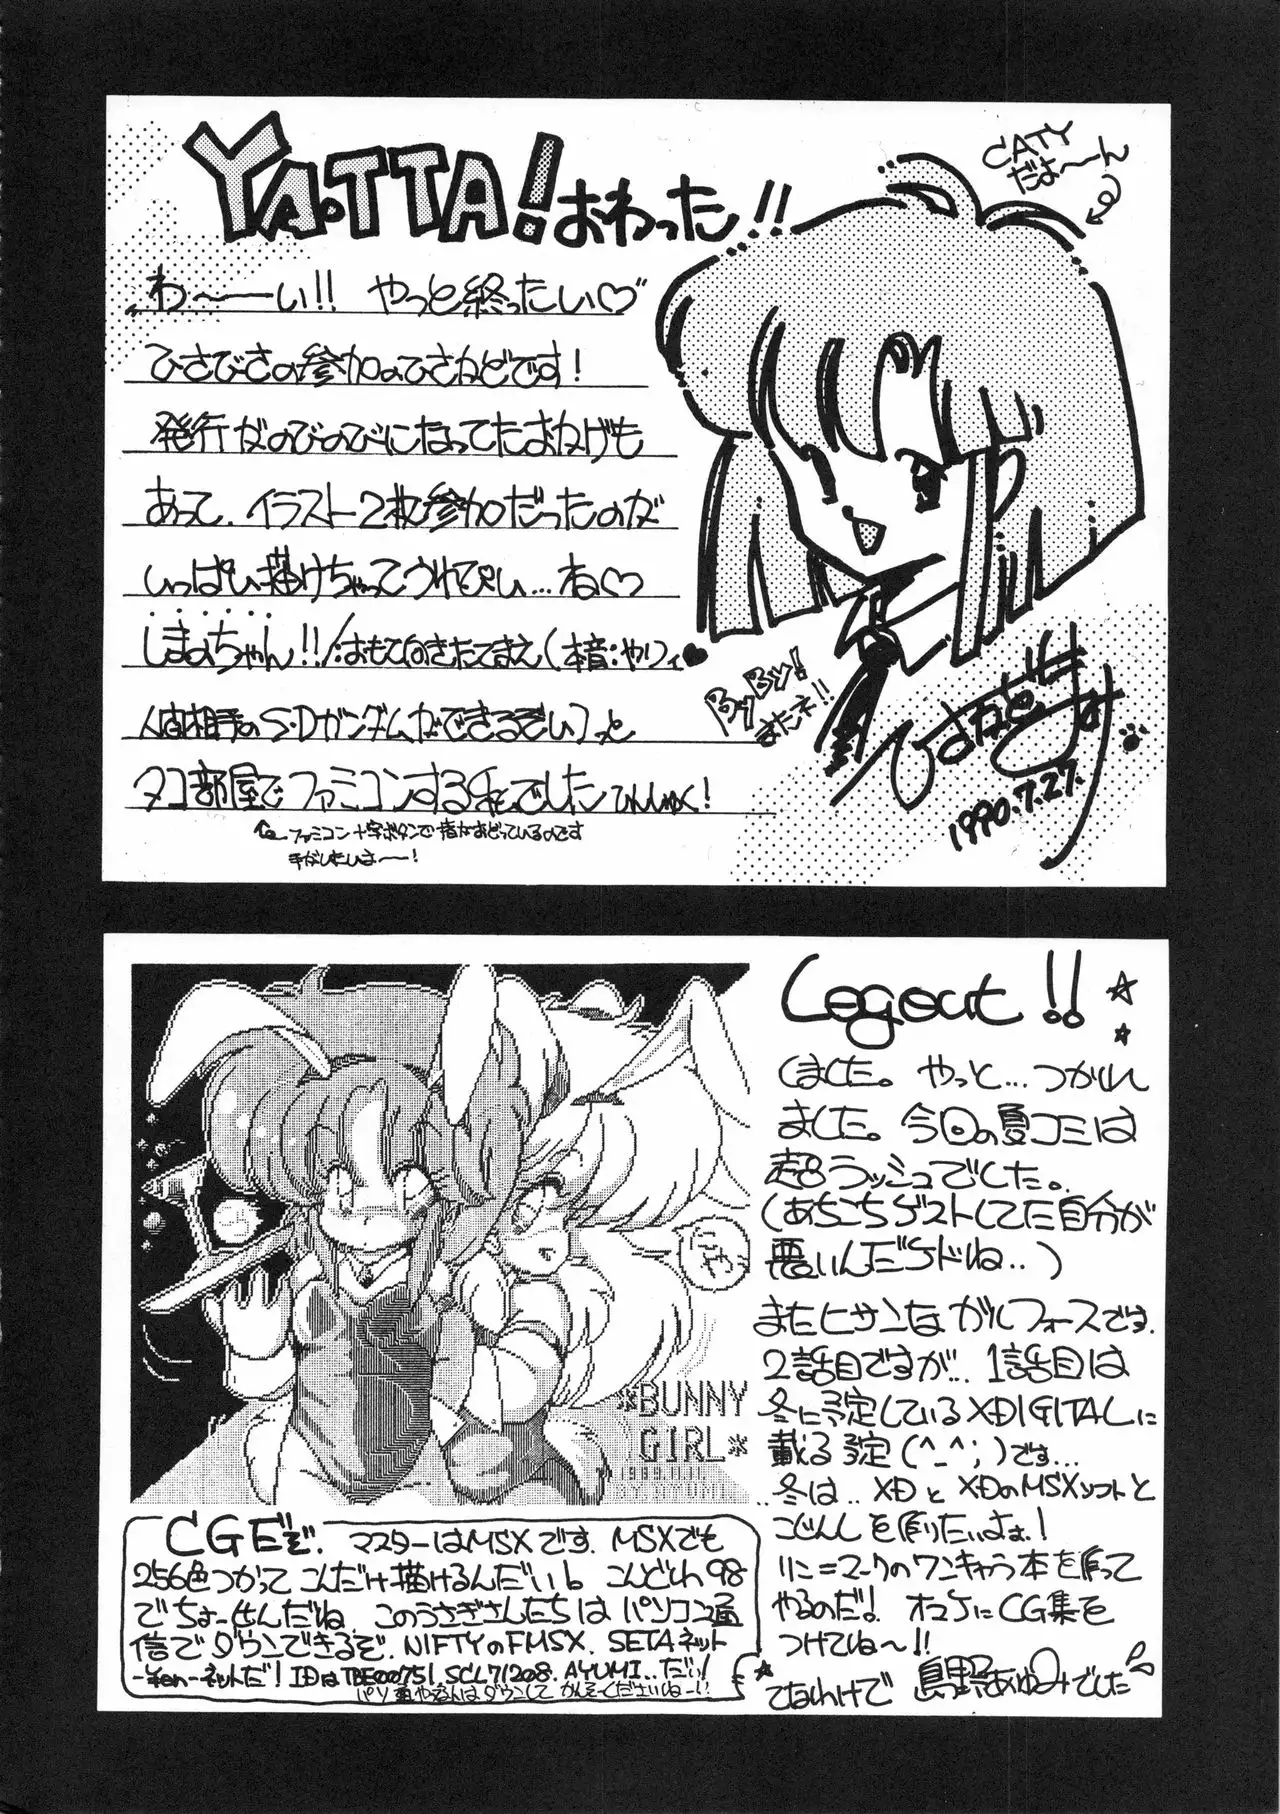 YA.TTA! おわった!!
CATY
だよ〜〜ん
わ〜〜い!! やっと終ったい♡
ひさびさの参加のひさねどです!
発行がのびのびになってたおかげも
あって、イラスト2枚参加だったのが
いっぱい描けちゃってうれぴい…ね♡
しまのちゃん!!/:おもて向きたてまえ(本音:やりィ♥
人間相手のS・Dガンダムができるぞい)っと
タコ部屋でファミコンする私でした
ファミコン十字ボタンで指がおどっているのです
By By!
またネ!!
1990.7.27.
Logout!!
しました。やっと…つかれ
ました。今回の夏コミは
超ラッシュでした。
(あちこちゲストしてた自分が
悪いんだケドね..)
またヒサンなガルフォースです.
2話目ですが… 1話目は
冬に予定しているXDIGITALに
載る予定(^_^;)です…
..冬は.. XDとXDのMSXソフトと
こじんしを作りたいよぉ!
リニ=マークのワンキャラ本を作って
やるのだよ! オマケにCG集を
つけてね〜!!
てなわけで 島野あゆみでした
にゃ
*BUNNY
GIRL*
1989.11.11.
BY.AYUMI
CGEぞ. マスターはMSXです. MSXでも
256色つかってこんだけ描けるんだいb こんどわ98
でちょーせんだね このうさぎさんたちはパソコン通
信でダウンできるぞ. NIFTYのFMSX. SETAネット
-¥en-ネットだ! IDはTBE00751. SCL71208. AYUMI..だい!
パソ通やさんはダウンしてかんそーくださいねー!